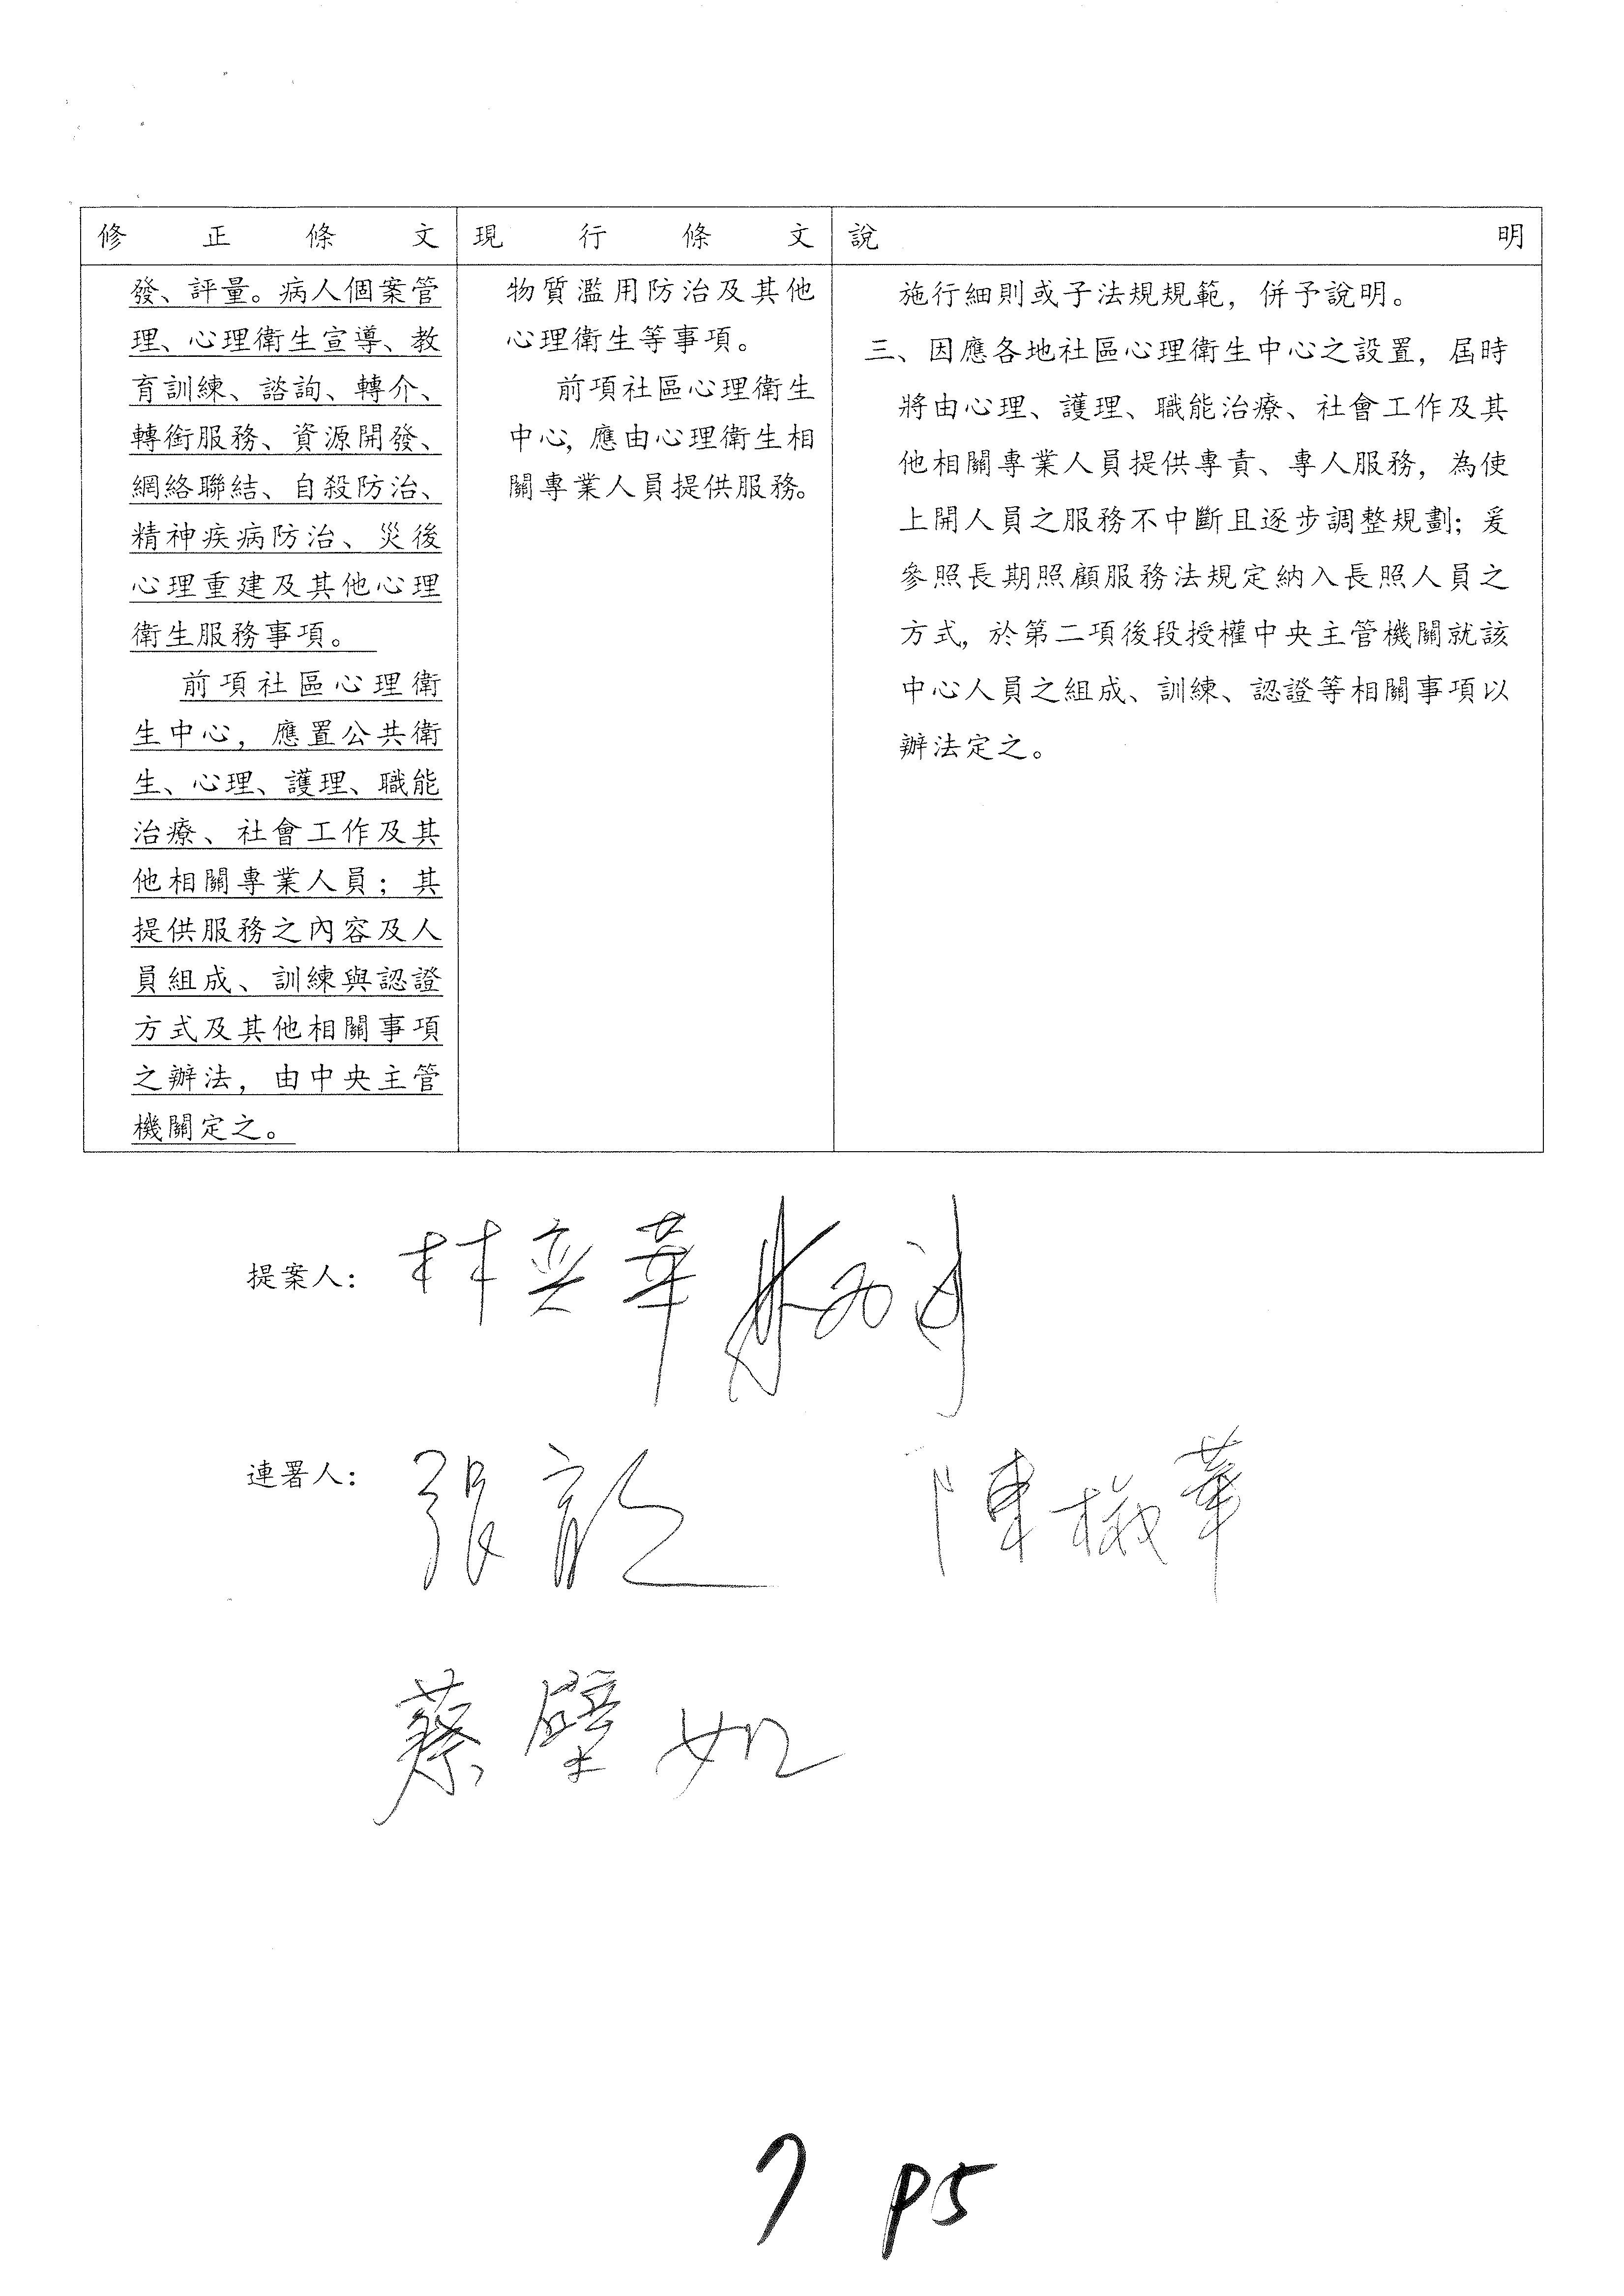 修正條文
發、評量。病人個案管
理、心理衛生宣導、教
育訓練、諮詢、轉介、
轉銜服務、資源開發、
網絡聯結、自殺防治、
精神疾病防治、災後
心理重建及其他心理
衛生服務事項。
前項社區心理衛
生中心，應置公共衛
生、心理、護理、職能
治療、社會工作及其
他相關專業人員；其
提供服務之內容及人
員組成、訓練與認證
方式及其他相關事項
之辦法，由中央主管
機關定之。
現行條文
物質濫用防治及其他
心理衛生等事項。
前項社區心理衛生
中心，應由心理衛生相
關專業人員提供服務。
說明
施行細則或子法規規範，併予說明。
三、因應各地社區心理衛生中心之設置，屆時
將由心理、護理、職能治療、社會工作及其
他相關專業人員提供專責、專人服務，為使
上開人員之服務不中斷且逐步調整規劃；爰
參照長期照顧服務法規定納入長照人員之
方式，於第二項後段授權中央主管機關就該
中心人員之組成、訓練、認證等相關事項以
辦法定之。
提案人： 林奕華
連署人： 張 陳椒華
蔡壁如
7 P5